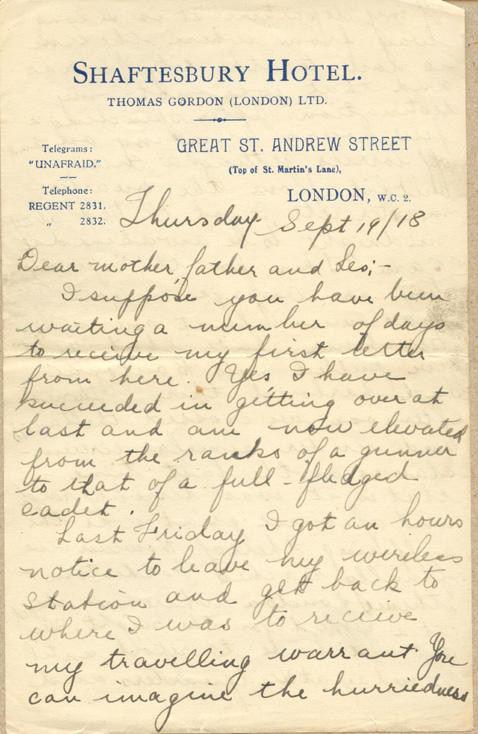 SHAFTESBURY HOTEL.
THOMAS GORDON (LONDON) LTD.
Telegrams:
"UNAFRAID."
Telephone:
REGENT 2831.
" 2832.
GREAT ST. ANDREW STREET
(Top of St. Martin's Lane),
LONDON, W.C. 2.
Thursday Sept 19/18
Dear mother, father and Les;-
I suppose you have been
waiting a number of days
to receive my first letter
from here. Yes I have
succeeded in getting over at
last and am now elevated
from the ranks of a gunner
to that of a full-fledged
cadet.
Last Friday I got an hours
notice to leave my wireless
station and get back to
where I was to receive
my travelling warrant. You
can imagine the hurriedness